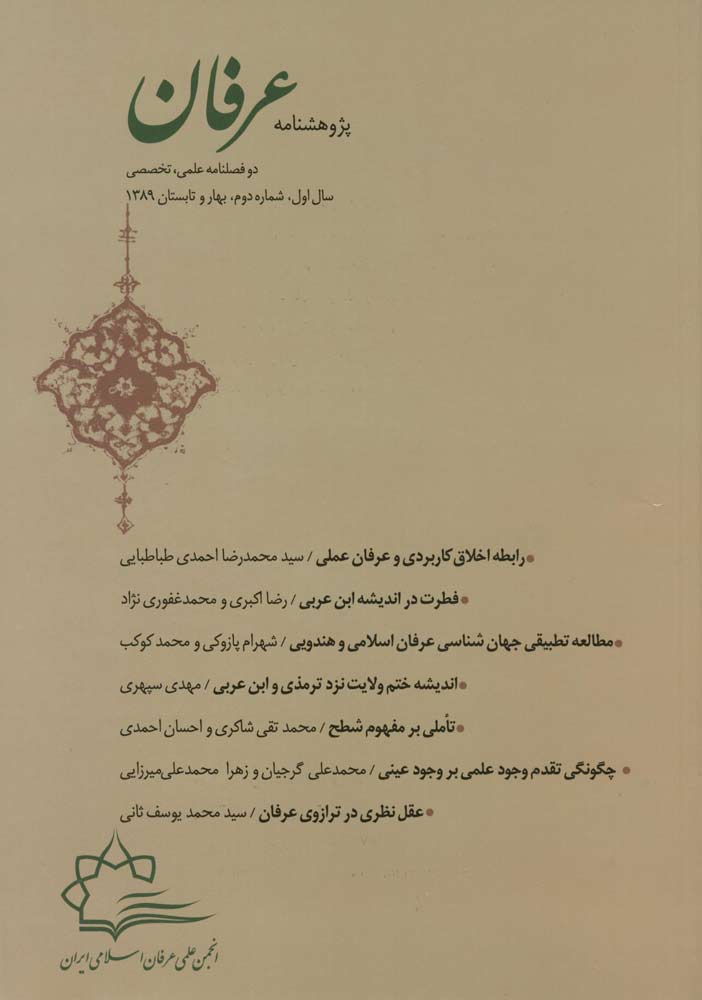 پژوهشنامه عرفان
دو فصلنامه علمی، تخصصی
سال اول، شماره دوم، بهار و تابستان ۱۳۸۹
●رابطه اخلاق کاربردی و عرفان عملی / سید محمدرضا احمدی طباطبایی
●فطرت در اندیشه ابن عربی / رضا اکبری و محمدغفوری نژاد
●مطالعه تطبیقی جهان شناسی عرفان اسلامی و هندویی / شهرام پازوکی و محمد کوکب
●اندیشه ختم ولایت نزد ترمذی و ابن عربی / مهدی سپهری
●تأملی بر مفهوم شطح / محمد تقی شاکری و احسان احمدی
● چگونگی تقدم وجود علمی بر وجود عینی / محمدعلی گرجیان و زهرا محمدعلی‌میرزایی
●عقل نظری در ترازوی عرفان / سید محمد یوسف ثانی
انجمن علمی عرفان اسلامی ایران